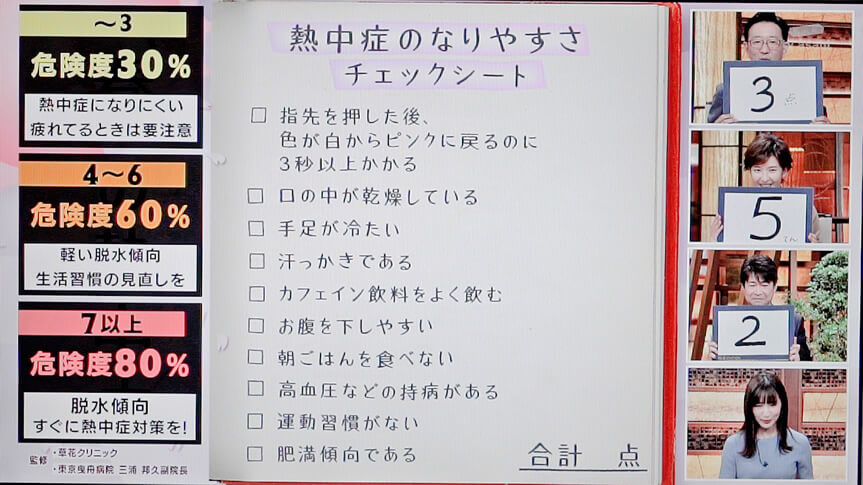 ～3
危険度30%
熱中症になりにくい
疲れてるときは要注意
4～6
危険度60%
軽い脱水傾向
生活習慣の見直しを
7以上
危険度80%
脱水傾向
すぐに熱中症対策を!
監修
・草花クリニック
・東京曳舟病院 三浦 邦久副院長
熱中症のなりやすさ
チェックシート
□ 指先を押した後、
色が白からピンクに戻るのに
3秒以上かかる
□ 口の中が乾燥している
□ 手足が冷たい
□ 汗っかきである
□ カフェイン飲料をよく飲む
□ お腹を下しやすい
□ 朝ごはんを食べない
□ 高血圧などの持病がある
□ 運動習慣がない
□ 肥満傾向である
合計 点
3点
5てん
2